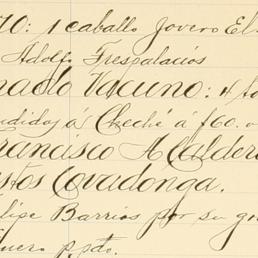 70: 1 caballo Jovero El
Adolfo Trespalacios
nado Vacuno: 4
didos á Cheché a $60.
rancisco A Calder
stos Covadonga.
lipe Barrios por su
nero p. pdo.